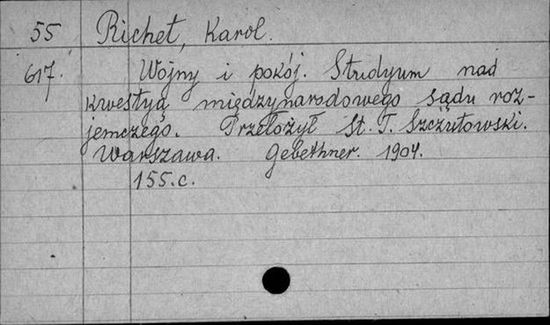 55 Richet, Karol.
617. Wojny i pokój. Studyum nad
kwestyą międzynarodowego sądu roz-
jemczego. Przełożył St. T. Szczutowski.
Warszawa. Gebethner. 1904.
155.c.